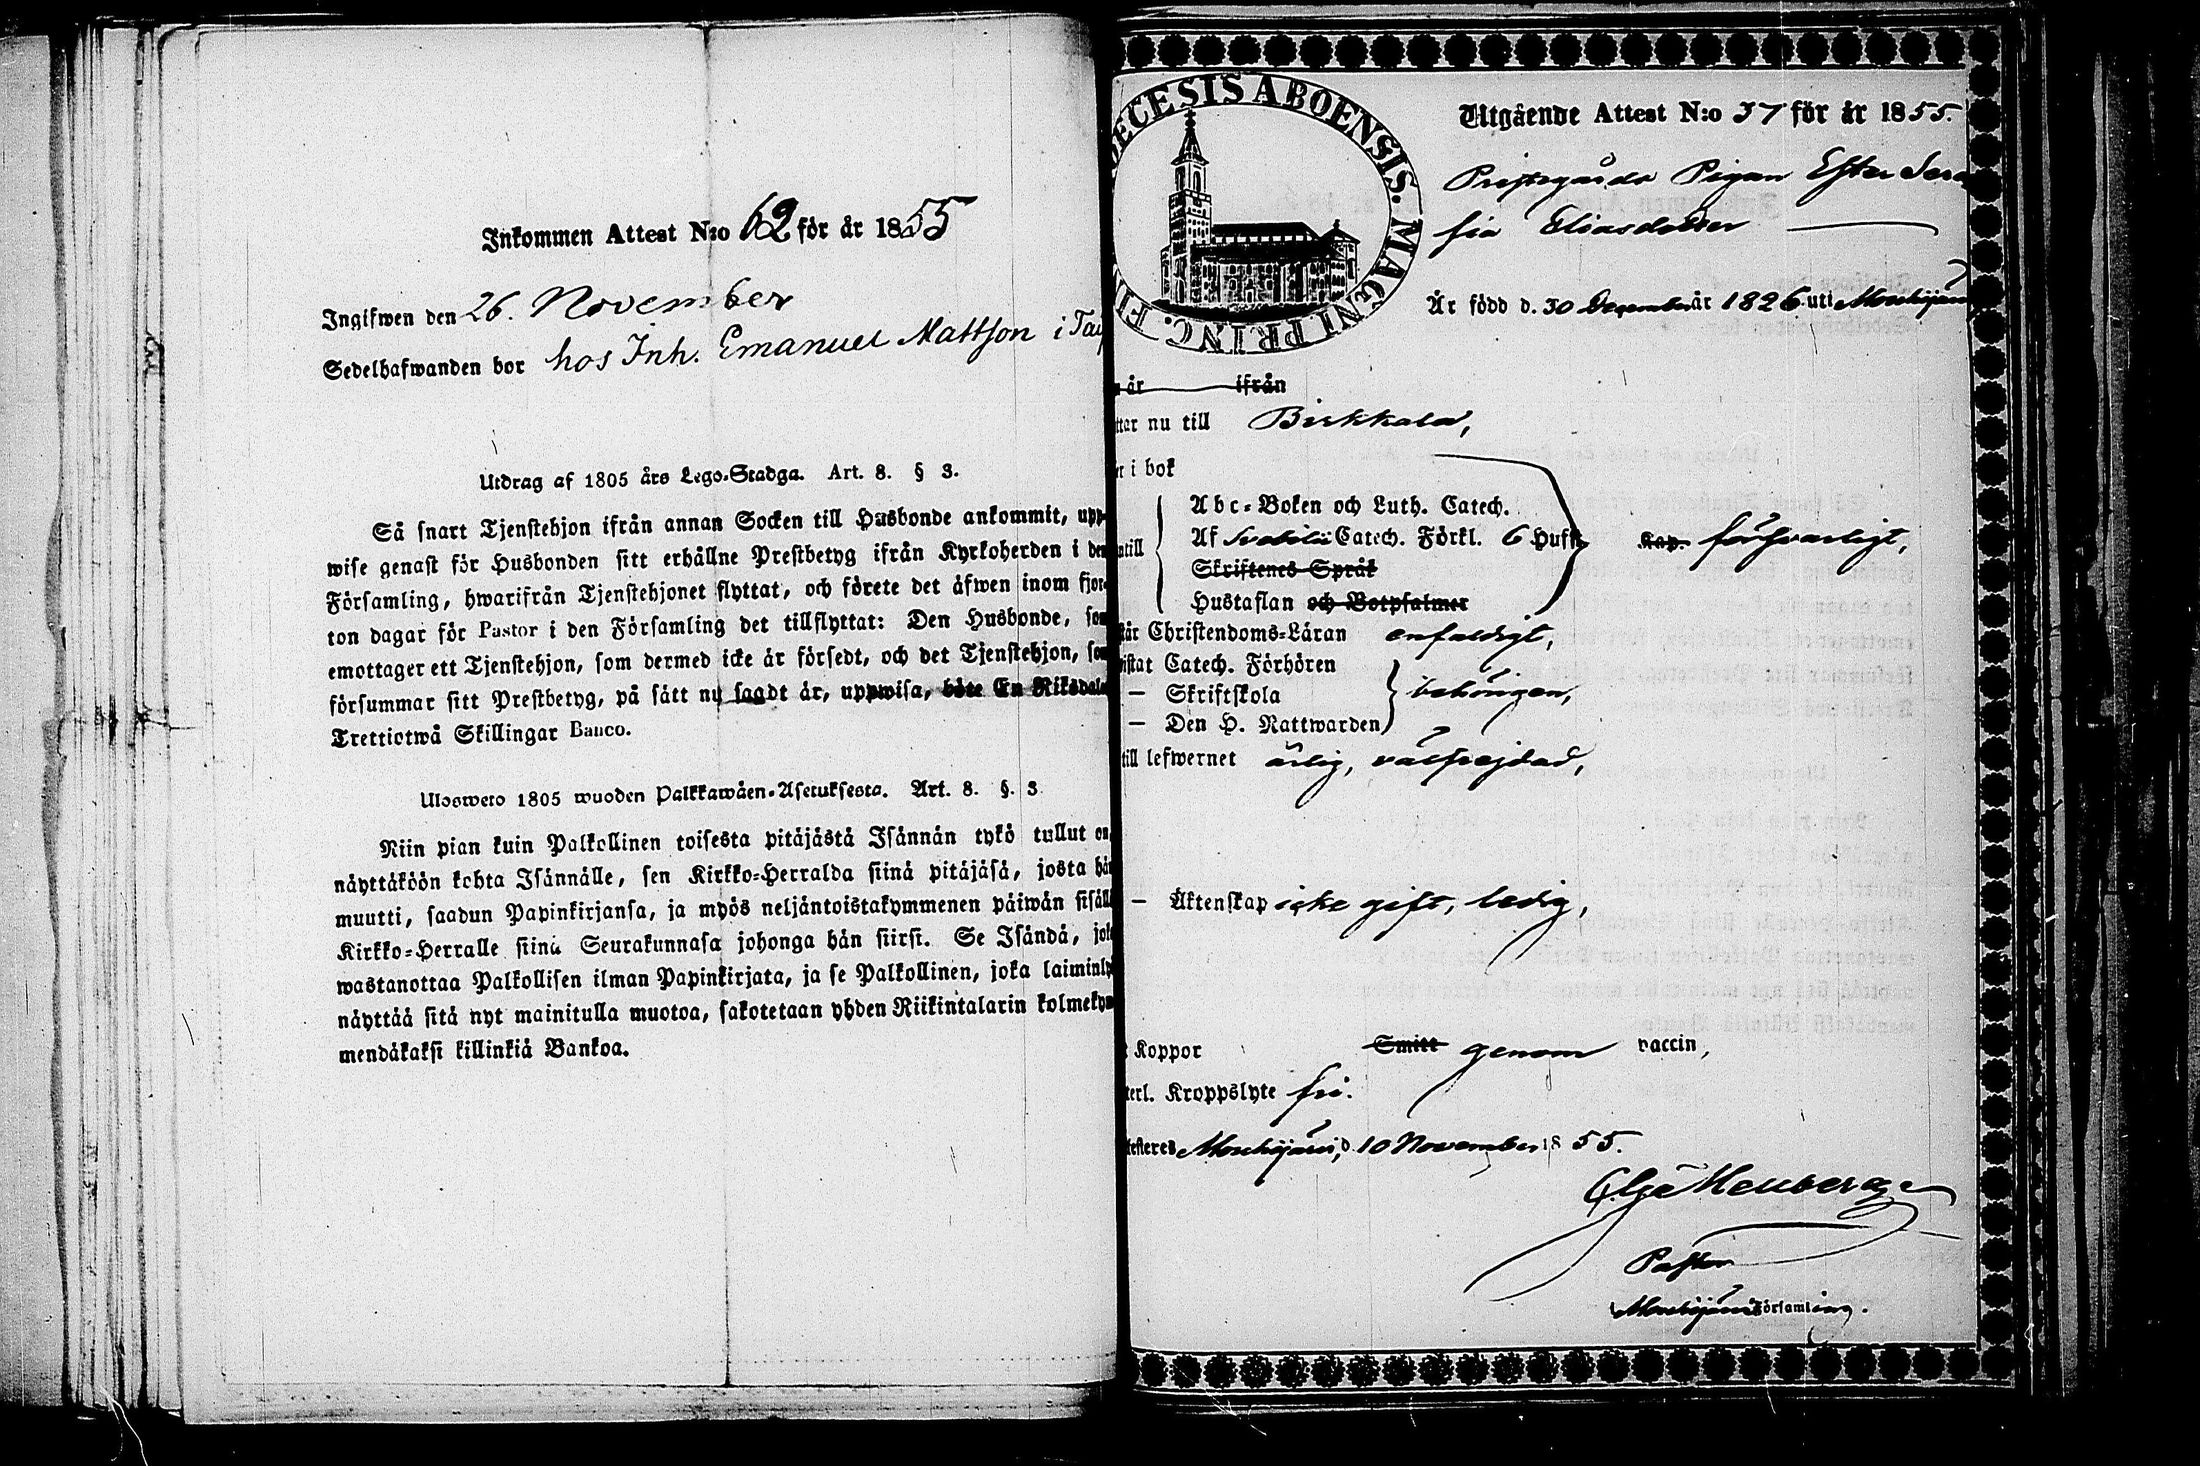 Inkommen Attest N:o 62 för år 1855
Ingifwen den 26. November
Sedelhafwanden bor hos Inh. Emanuel Mattsson i
Utdrag af 1805 års Lego-Stadga. Art. 8. § 3.
Så snart Tjenstehjon ifrån annan Socken till Husbonde ankommit, upp-
wise genast för Husbonden sitt erhållne Prestbetyg ifrån Kyrkoherden i den
Församling, hwarifrån Tjenstehjonet flyttat, och förete det äfwen inom fjor-
ton dagar för Pastor i den Församling det tillflyttat: Den Husbonde, som
emottager ett Tjenstehjon, som dermed icke är försedt, och det Tjenstehjon, som
försummar sitt Prestbetyg, på sätt nu sagdt är, uppwisa, böte En Riksdaler
Trettiotwå Skillingar Banco.
Ulosweto 1805 wuoden Palkkawäen-Asetuksesta. Art. 8. §. 3
Niin pian kuin Palkollinen toisesta pitäjästä Isännän tykö tullut on,
näyttäköön kohta Isännälle, sen Kirkko-Herralda siinä pitäjäsä, josta hän
muutti, saadun Papinkirjansa, ja myös neljäntoistakymmenen päiwän sisällä
Kirkko-Herralle siinä Seurakunnasa johonga hän siirsi. Se Isändä, joka
wastanottaa Palkollisen ilman Papinkirjata, ja se Palkollinen, joka laiminly
näyttää sitä nyt mainitulla muotoa, sakotetaan yhden Riikintalarin kolmekym
mendäkaksi killinkiä Bankoa.
DECESIS ABOENSIS. MAGNI PRINC. FIN
Utgående Attest N:o 37 för år 1855.
Prestgårds Pigan Ester Sera
fia Eliasdotter
Är född d. 30 December år 1826 uti Mouhijärvi
år ifrån
ttar nu till Birkkala,
r i bok
Abc-Boken och Luth. Catech.
ntill Af Svebilii Catech. Förkl. 6 Hufst. Kap. försvarligt,
Skriftenes Språk
Hustaflan och Botpsalmer
står Christendoms-Läran enfaldigt,
istat Catech. Förhören
— Skriftskola behörigen,
— Den H. Nattwarden
till lefwernet ärlig, välfrejdad,
— Äktenskap icke gift, ledig,
t Koppor Smitt genom vaccin,
terl. Kroppslyte fri.
testeres Mouhijärvi, d. 10 November 1855.
Pastor
Mouhijärvi Församling.